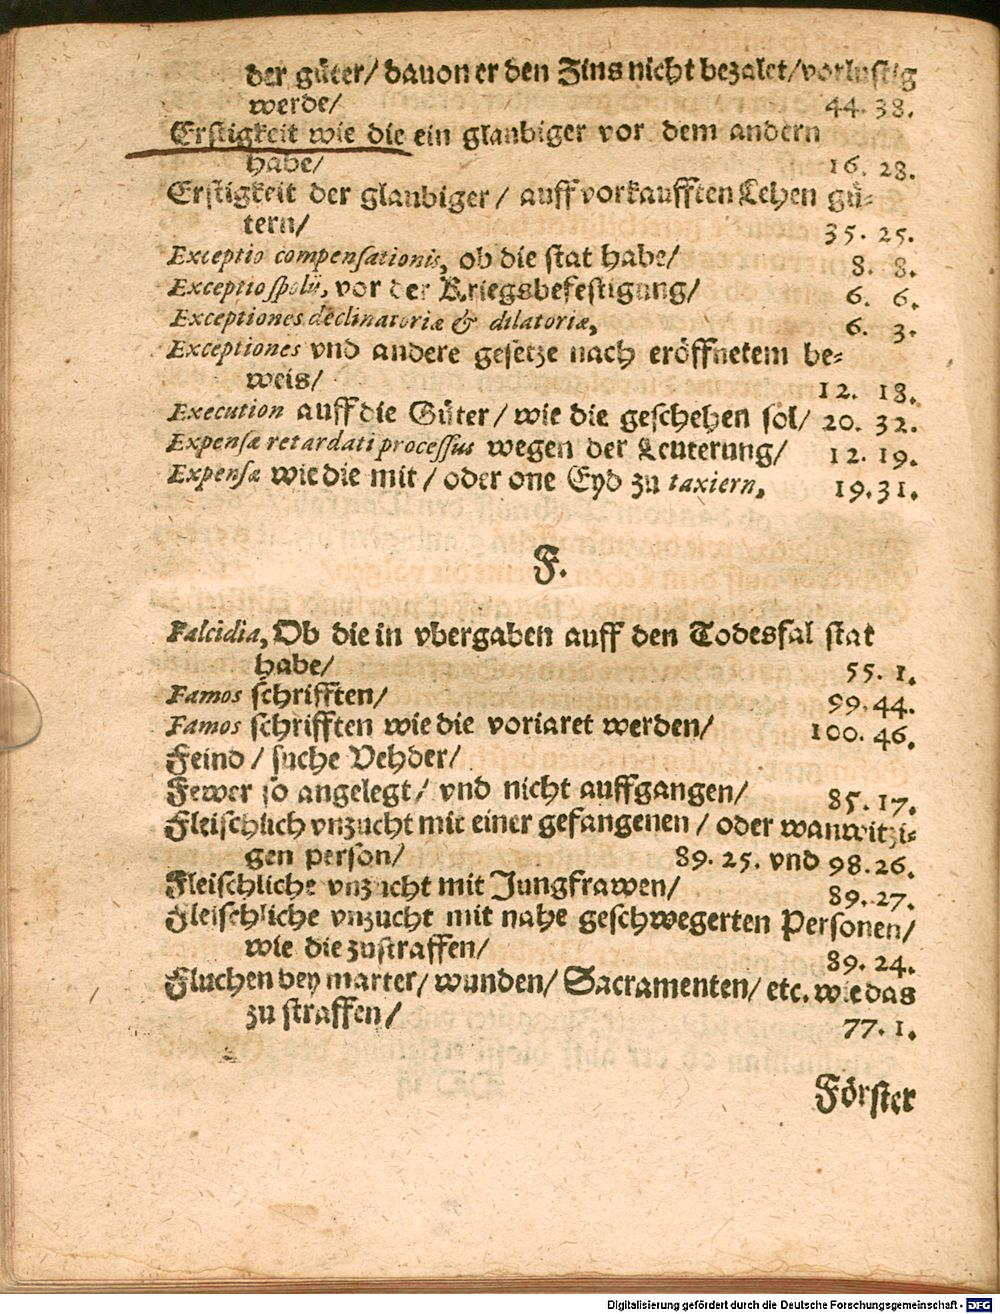 der güter/ dauon er den Zins nicht bezalet/ vorlustig
werde/ 44. 38.
Erstigkeit wie die ein glaubiger vor dem andern
habe/ 16. 28.
Erstigkeit der glaubiger / auff vorkaufften Lehen gü-
tern/ 35. 25.
Exceptio compensationis, ob die stat habe/ 8. 8.
Exceptio spolij, vor der Kriegsbefestigung/ 6. 6.
Exceptiones declinatoriæ & dilatoriæ, 6. 3.
Exceptiones vnd andere gesetze nach eröffnetem be-
weis/ 12. 18.
Execution auff die Güter / wie die geschehen sol/ 20. 32.
Expensæ retardati processus wegen der Leuterung/ 12. 19.
Expensæ wie die mit / oder one Eyd zu taxiern, 19. 31.
F.
Falcidia, Ob die in vbergaben auff den Todesfal stat
habe/ 55. 1.
Famos schrifften/ 99. 44.
Famos schrifften wie die voriaret werden/ 100. 46.
Feind / suche Vehder/
Fewer so angelegt/ vnd nicht auffgangen/ 85. 17.
Fleischlich vnzucht mit einer gefangenen / oder wanwitzi-
gen person/ 89. 25. vnd 98. 26.
Fleischliche vnzucht mit Jungfrawen/ 89. 27.
Fleischliche vnzucht mit nahe geschwegerten Personen/
wie die zustraffen/ 89. 24.
Fluchen bey marter/ wunden/ Sacramenten/ etc. wie das
zu straffen/ 77. 1.
Förster
Digitalisierung gefördert durch die Deutsche Forschungsgemeinschaft - DFG